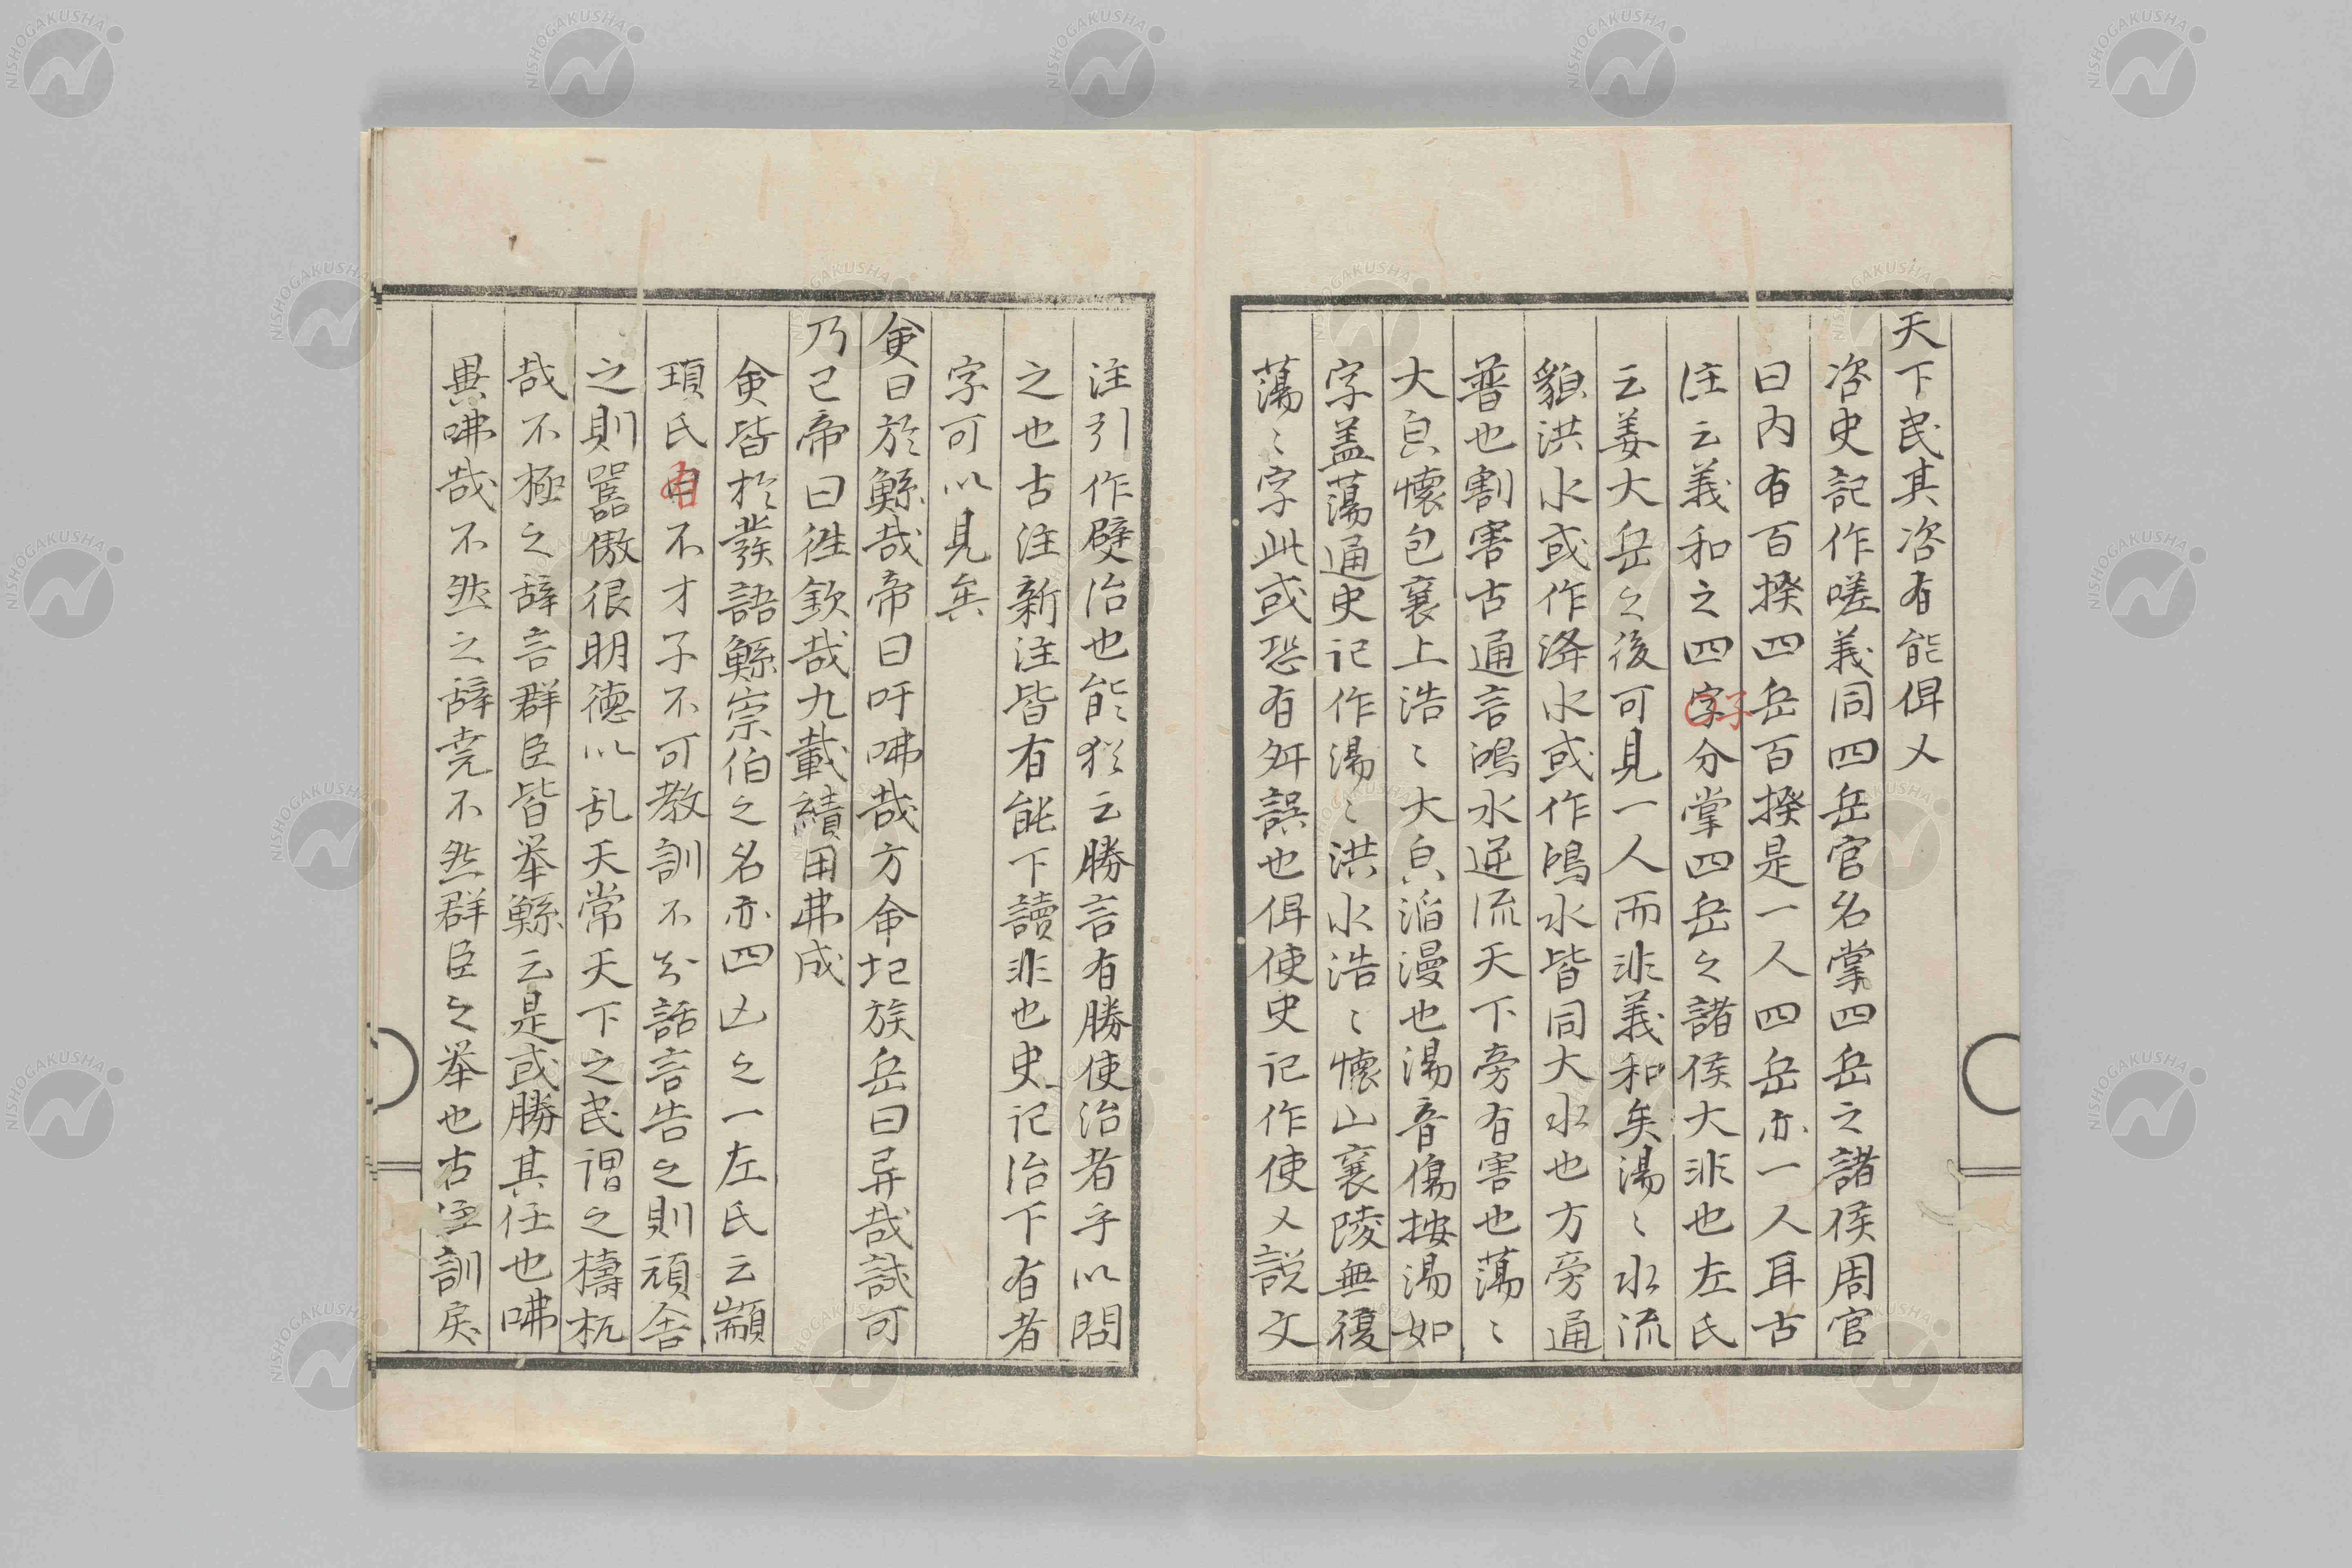 天下民其咨有能俾乂
咨史記作嗟義同四岳官名掌四岳之諸侯周官
曰内有百揆四岳百揆是一人四岳亦一人耳古
注云義和之四字子分掌四岳之諸侯大非也左氏
云姜大岳之後可見一人而非義和矣湯〻水流
貌洪水或作洚水或作鴻水皆同大水也方旁通
普也割害古通言鴻水逆流天下旁有害也蕩〻
大皃懷包襄上浩〻大皃滔漫也湯音傷按湯如
字盖蕩通史記作湯〻洪水浩〻懷山襄陵無復
蕩〻字此或恐有舛誤也俾使史記作使乂説文
注引作嬖治也能猶云勝言有勝使治者乎以問
之也古注新注皆有能下讀非也史記治下有者
字可以見矣
僉曰於鯀哉帝曰吁咈哉方命圮族岳曰异哉試可
乃已帝曰往欽哉九載績用弗成
僉皆於發語鯀崇伯之名亦四凶之一左氏云顓
頊氏有不才子不可教訓不知話言告之則頑舍
之則嚚傲很明德以乱天常天下之民謂之檮杌
哉不極之辞言群臣皆举鯀云是或勝其任也咈
異咈哉不然之辞尭不然群臣之举也古注訓戻
NISHOGAKUSHA
NISHOGAKUSHA
NISHOGAKUSHA
NISHOGAKUSHA
NISHOGAKUSHA
NISHOGAKUSHA
NISHOGAKUSHA
NISHOGAKUSHA
NISHOGAKUSHA